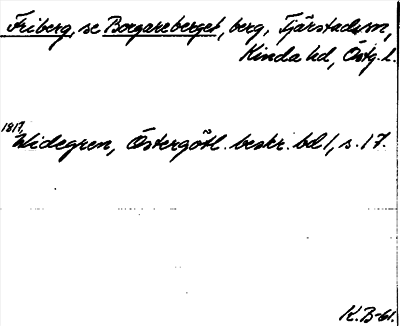 Friberg, se Borgareberget, berg, Tjärstadsn,
Kinda hd, Östg. l.
1817, Widegren, Östergötl. beskr. bd 1, s. 17.
K.B-61.